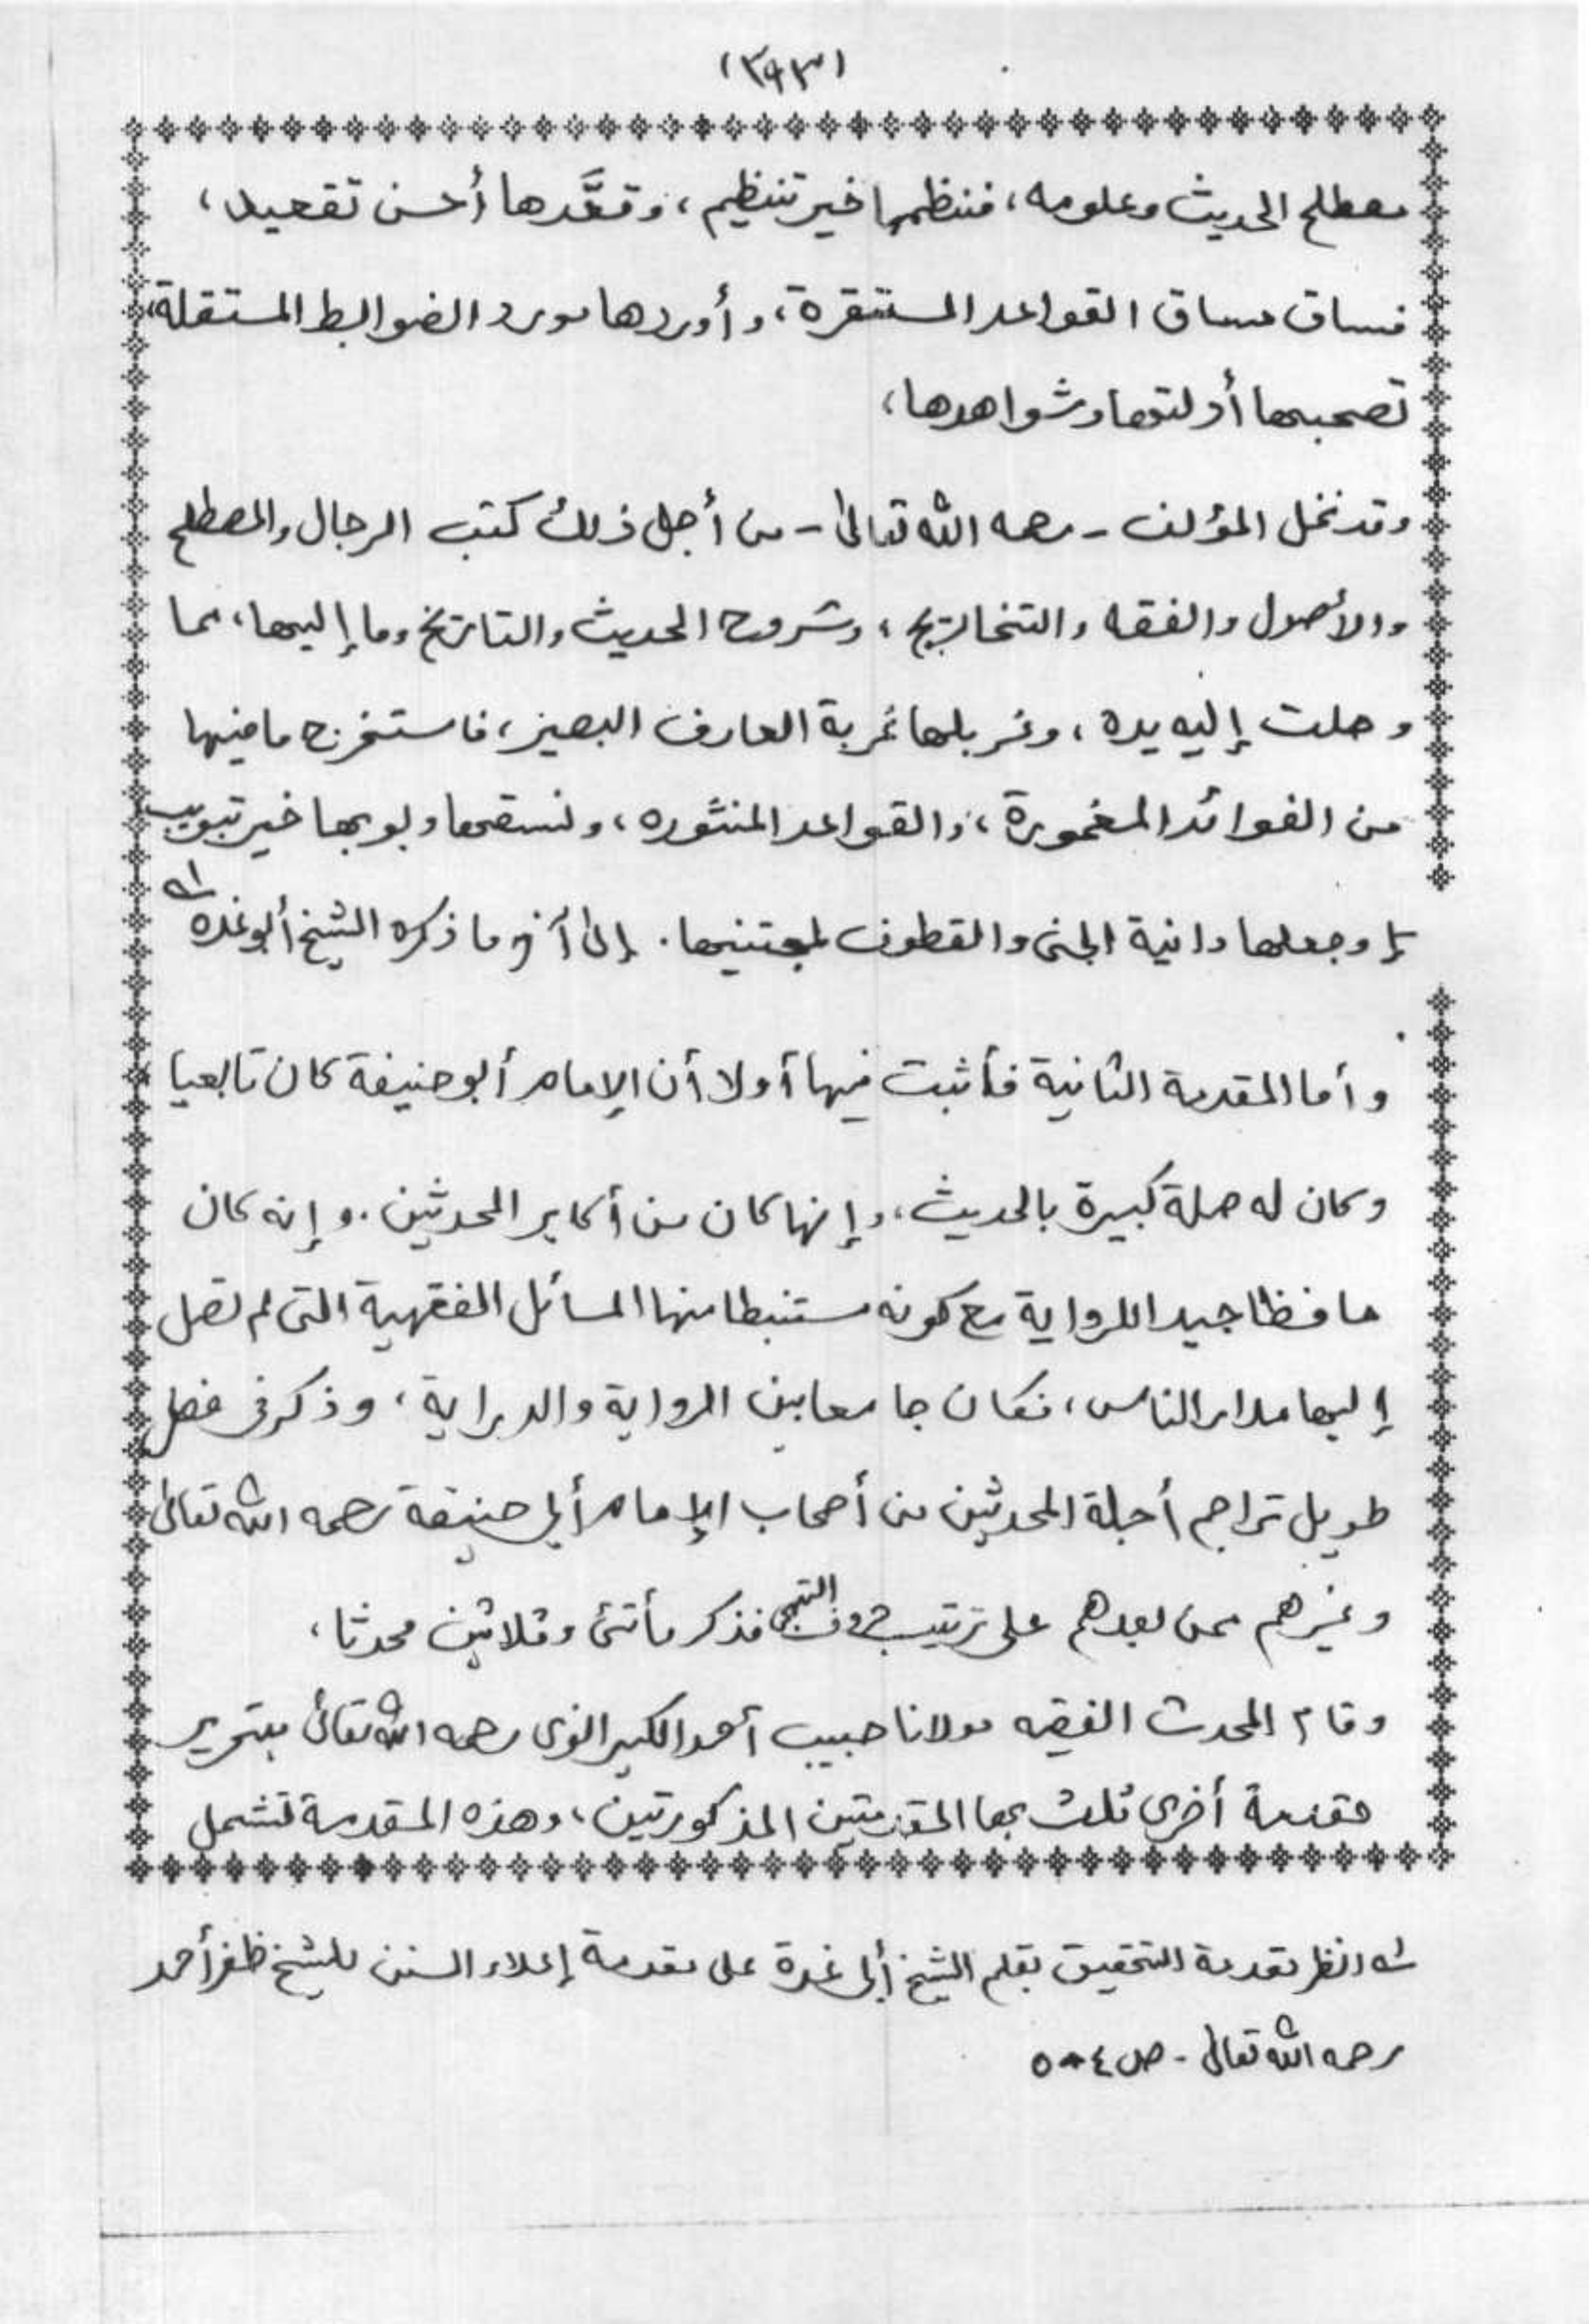 (٣٩٣)
مصطلح الحديث وعلومه، فنظمها خير تنظيم، وقعَّدها أحسن تقعيد،
فساق مساق القواعد المستقرة، وأوردها مورد الضوابط المستقلة،
تصحبها أدلتها وشواهدها،
وقد نخل المؤلف - رحمه الله تعالى - من أجل ذلك كتب الرجال والمصطلح
والأصول والفقه والتخاريج، وشروح الحديث والتاريخ وما إليها، مما
وصلت إليه يده، وغربلها غربة العارف البصير، فاستخرج ما فيها
من الفوائد المغمورة، والقواعد المنثوره، ونسقها وبوبها خير تبويب
وجعلها دانية الجنى والقطوف لمجتنيها. إلى آخر ما ذكره الشيخ أبو غده له
وأما المقدمة الثانية فأثبت فيها أولا أن الإمام أبو حنيفة كان تابعيا
وكان له صلة كبيرة بالحديث، وإنها كان من أكابر المحدثين. وإنه كان
حافظا جيد الرواية مع كونه مستنبطا منها المسائل الفقهية التى لم تصل
إليها مدار الناس، فكان جامعا بين الرواية والدراية، وذكر فى فصل
طويل تراجم أجلة المحدثين من أصحاب الإمام أبي حنيفة رحمه الله تعالى
وغيرهم ممن بعدهم على ترتيب حروف التهجى فذكر مأتى وثلاثين محدثا،
وقام المحدث الفقيه مولانا حبيب أحمد الكيرانوى رحمه الله تعالى بتحرير
مقدمة أخرى ثلث بها المقدمتين المذكورتين، وهذه المقدمة تشمل
له انظر تقدمة التحقيق بقلم الشيخ أبى غدة على مقدمة إعلاء السنن للشيخ ظفر أحمد
رحمه الله تعالى - ص ٤